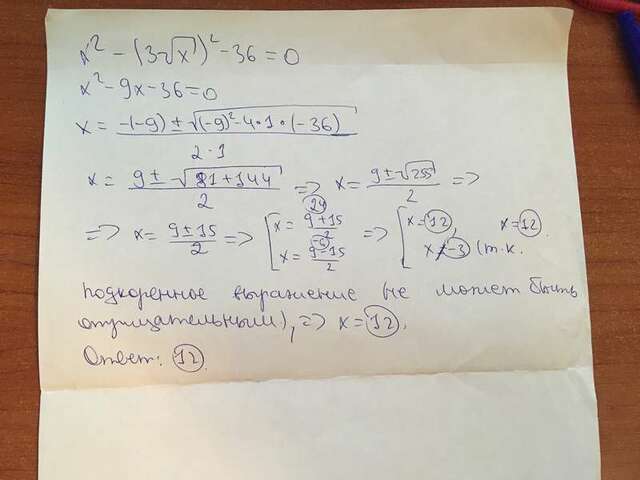 x² - (3√x)² - 36 = 0
x² - 9x - 36 = 0
x = -(-9) ± √(-9)² - 4·1·(-36) / 2·1
x = 9 ± √81 + 144 / 2 => x = 9 ± √225 / 2 =>
=> x = 9 ± 15 / 2 => [ x = 9 + 15 / 2 24 => [ x = 12 x = 12
x = 9 - 15 / 2 -6 x ≠ -3 (т.к.
подкоренное выражение не может быть
отрицательным), => x = 12.
Ответ: 12